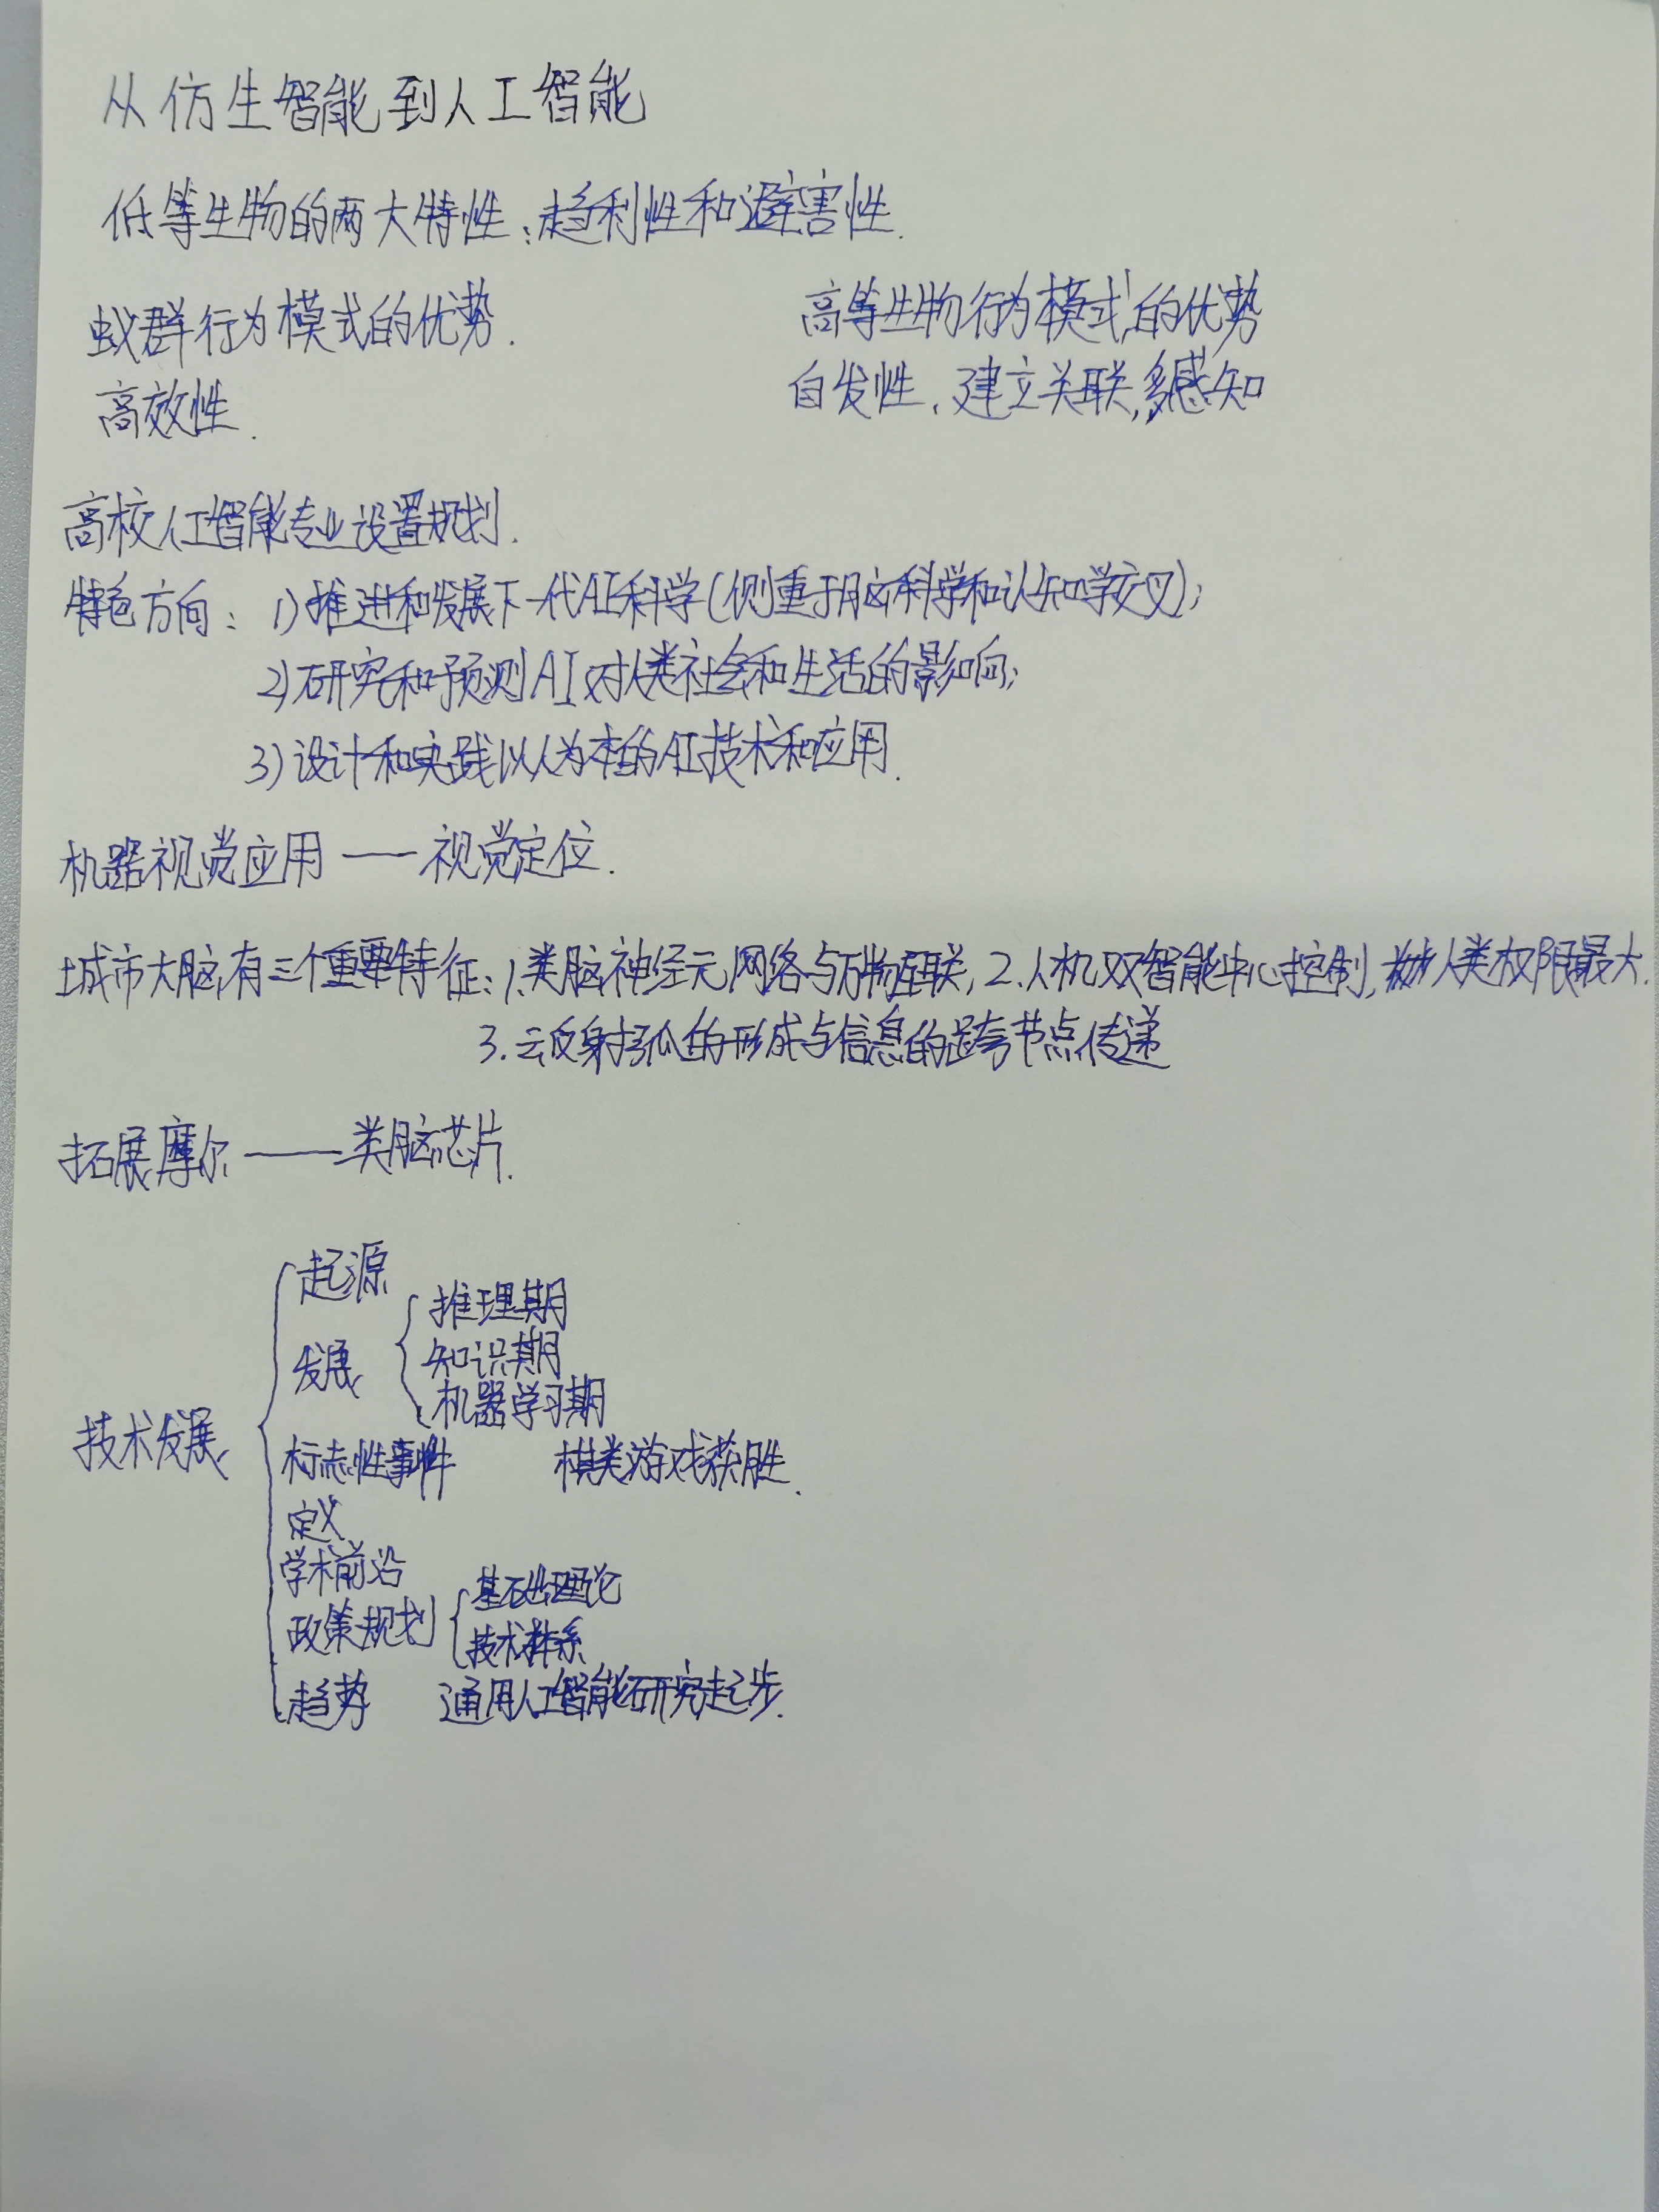 从仿生智能到人工智能
低等生物的两大特性：趋利性和避害性.
蚁群行为模式的优势.
高效性.
高等生物行为模式的优势
自发性、建立关联,多感知
高校人工智能专业设置规划.
特色方向：1)推进和发展下一代AI科学(侧重于脑科学和认知学交叉);
2)研究和预测AI对人类社会和生活的影响;
3)设计和实践以人为本的AI技术和应用.
机器视觉应用——视觉定位.
城市大脑有三个重要特征：1.类脑神经元网络与万物互联,2.人机双智能中心控制,人类权限最大.
3.云反射弧的形成与信息的跨节点传递
拓展摩尔——类脑芯片.
技术发展
起源
发展
推理期
知识期
机器学习期
标志性事件 棋类游戏获胜.
定义
学术前沿
政策规划
基础理论
技术体系
趋势 通用人工智能研究起步.